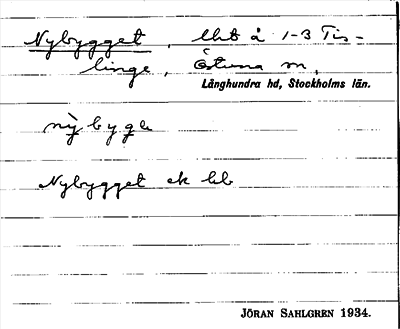 Nybygget, lht å 1-3 Tis-
linge, Östuna sn,
Långhundra hd, Stockholms län.
nỳbygge
Nybygget ek bl
JÖRAN SAHLGREN 1934.